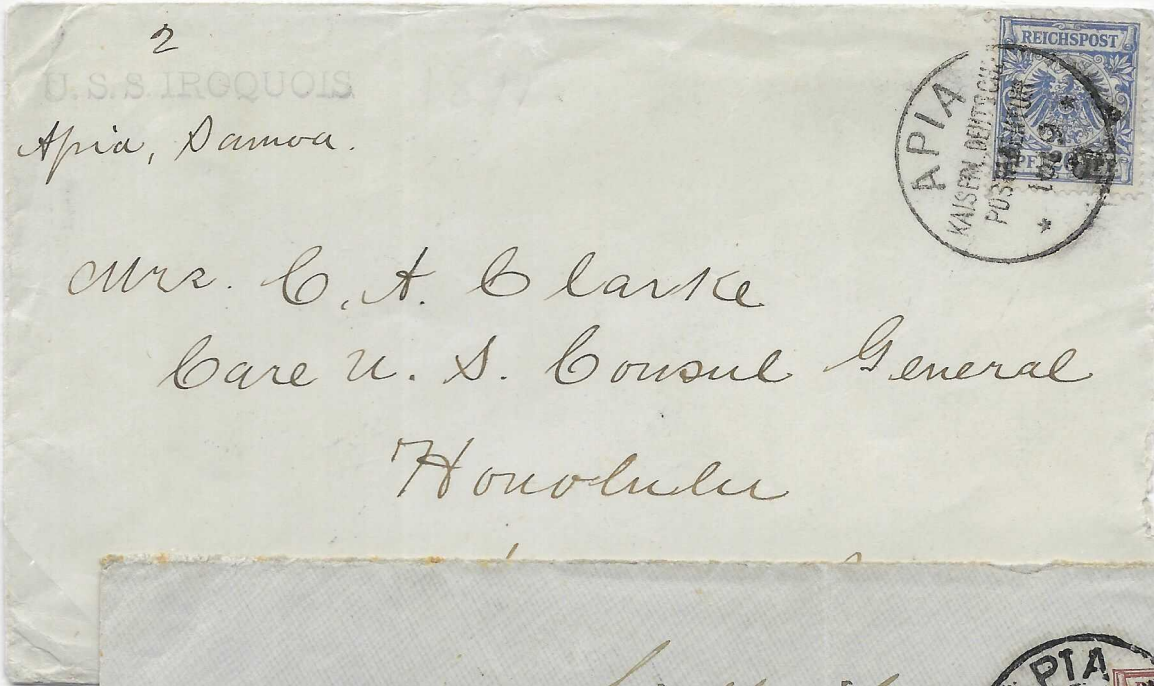 2
U.S.S IROQUOIS
Apia, Samoa.
REICHSPOST
APIA
KAISERL. DEUTSCHE
Mrs. C. A. Clarke
Care U. S. Consul General
Honolulu
PIA